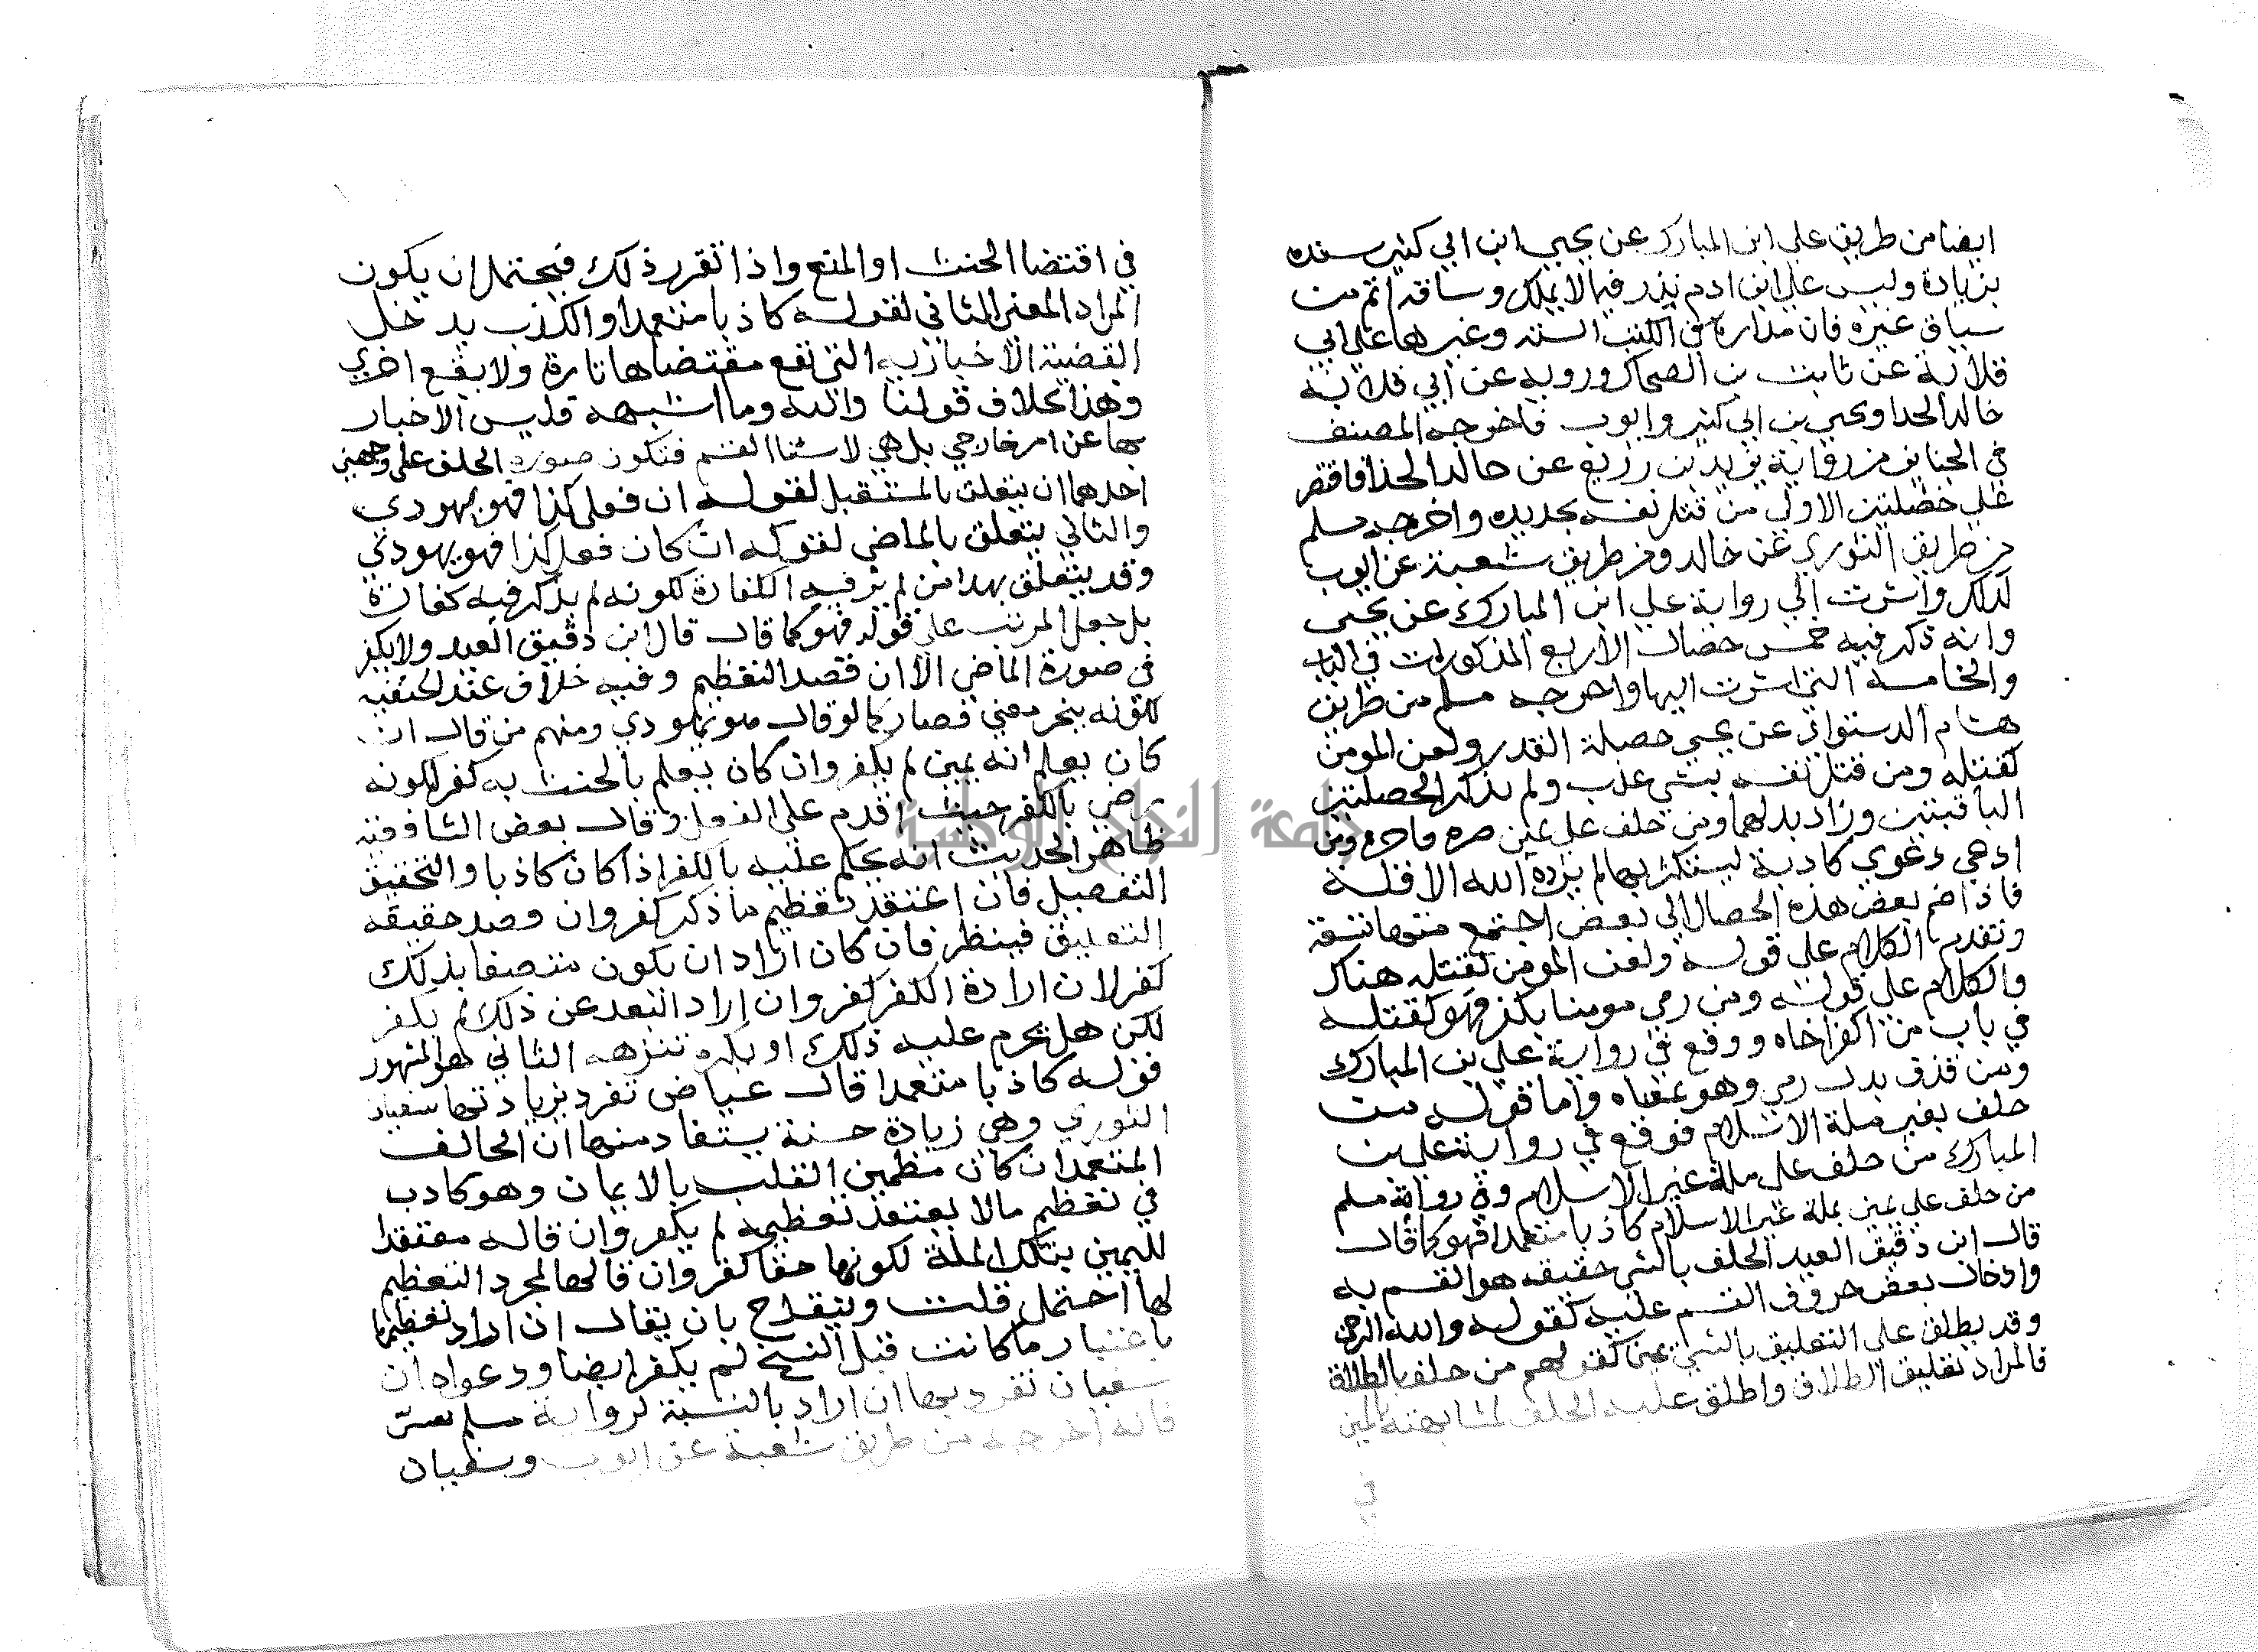 ايضا من طريق علي ابن المبارك عن يحيى ابن ابي كثير بسنده
بزيادة وليس علي ابن ادم نذر فيما لا يملك وساقه اتم من
سياق غيره فان مداره في الكتب الستة وغيرها علي ابي
قلابة عن ثابت بن الضحاك ورويه عن ابي قلابة
خالد الحذا ويحيى بن ابي كثير وايوب فاخرجه المصنف
في الجنايز من رواية يزيد بن زريع عن خالد الحذا فاقتصر
علي خصلتين الاولي من قتل نفسه بحديده واخرجه مسلم
من طريق الثوري عن خالد ومن طريق شعبة عن ايوب
كذلك واشرت الي رواية علي ابن المبارك عن يحيى
وانه ذكر فيه خمس خصال الاربع المذكورات في الباب
والخامسة التي اشرت اليها واخرجه مسلم من طريق
هشام الدستواي عن يحيى خصلة القدر ولعن المومن
كقتله ومن قتل نفسه بشي عذب ولم يذكر الخصلتين
الباقيتين وزاد بدلهما ومن حلف علي يمين صبر فاجره ومن
ادعي دعوي كاذبة ليستكثر بها لم يزده الله الا قلة
فاذا ضم بعض هذه الخصال الي بعض اجتمع منها تسعة
وتقدم الكلام علي قوله ولعن المومن كقتله هناك
والكلام علي قوله ومن رمي مومنا بكفر فهو كقتله
في باب من اكفر اخاه ووقع في رواية علي بن المبارك
ومن قذف بدل رمي وهو بمعناه واما قوله من
حلف بغير ملة الاسلام فوقع في رواية علي بن
المبارك من حلف علي ملة غير الاسلام وفي رواية مسلم
من حلف علي يمين بملة غير الاسلام كاذبا متعمدا فهو كما قال
قال ابن دقيق العيد الحلف بالشي حقيقه هو القسم به
وادخال بعض حروف القسم عليه كقوله والله الرحمن
وقد يطلق علي التعليق بالشي يمين كقولهم من حلف بالطلاق
فالمراد تعليق الطلاق واطلق عليه الحلف لمشابهته باليمين
في
في اقتضا الحنث او المنع واذا تقرر ذلك فيحتمل ان يكون
المراد المعني الثاني لقوله كاذبا متعمدا والكذب يدخل
القضية الاخباريه التي تقع مقتضاها تارة ولا يقع اخري
وهذا بخلاف قولنا والله وما اشبهه فليس الاخبار
بها عن امر خارجي بل هي لانشا القسم فتكون صورة الحلف علي وجهين
احدهما ان يتعلق بالمستقبل لقوله ان فعل كذا فهو يهودي
والثاني يتعلق بالماضي لقوله ان كان فعل كذا فهو يهودي
وقد يتعلق بهذا من لم ير فيه الكفارة لكونه لم يذكر فيه كفارة
بل جعل المرتب علي قوله فهو كما قال قال ابن دقيق العيد ولا يكفر
في صورة الماضي الا ان قصد التعظيم وفيه خلاف عند الحنفيه
لكونه بتخير معني فصار كما لو قال هو يهودي ومنهم من قال ان
كان يعلم انه يمين لم يكفر وان كان يعلم بالحنث به كفر لكونه
رضي بالكفر حيث اقدم علي الفعل وقال بعض الشافعيه
ظاهر الحديث انه يحكم عليه بالكفر اذا كان كاذبا والتحقيق
التفصيل فان اعتقد تعظيم ما ذكر كفر وان قصد حقيقه
التعليق فينظر فان كان اراد ان يكون متصفا بذلك
كفر لان ارادة الكفر كفر وان اراد البعد عن ذلك لم يكفر
لكن هل يحرم عليه ذلك او يكره تنزيهه الثاني هو المشهور
قوله كاذبا متعمدا قال عياض تفرد بزيادتها سفيان
الثوري وهي زيادة حسنة يستفاد منها ان الحالف
المتعمد ان كان مطمين القلب بالايمان وهو كاذب
في تعظيم ما لا يعتقد تعظيمه لم يكفر وان قاله معتقدا
لليمين بتلك الملة لكونها حقا كفر وان قالها لمجرد التعظيم
لها احتمل قلت وينقدح بان يقال ان اراد تعظيمها
باعتبار ما كانت قبل النسخ لم يكفر ايضا ودعواه ان
سفيان تفرد بها ان اراد بالنسبة لرواية مسلم
فانه اخرجه من طريق شعبة عن ايوب وسفيان
جامعة النجاح الوطنية